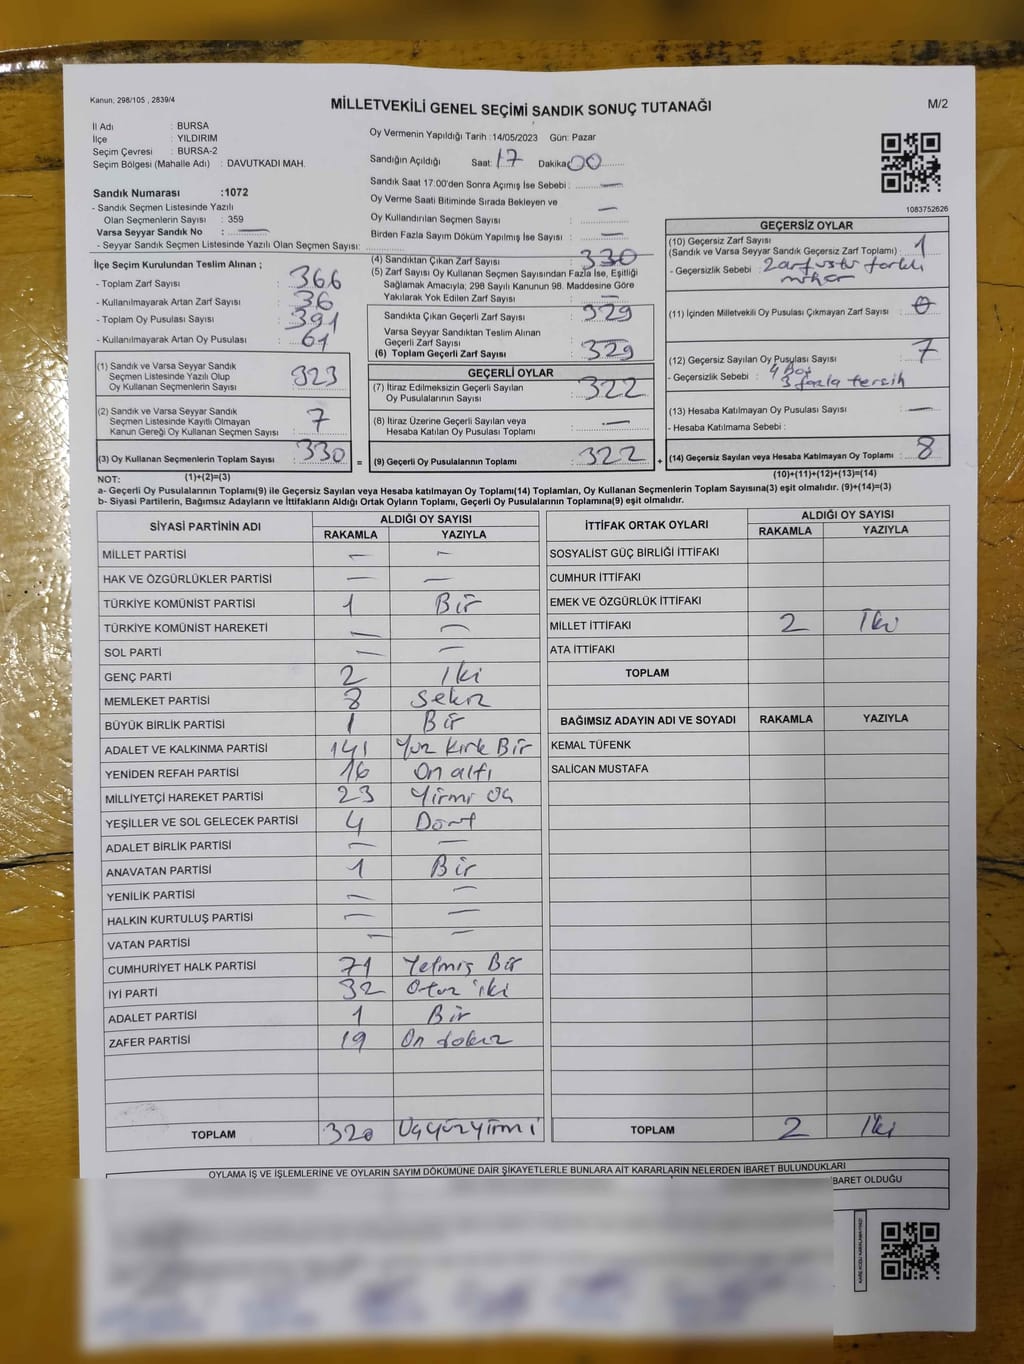 Kanun, 298/105 , 2839/4
MİLLETVEKİLİ GENEL SEÇİMİ SANDIK SONUÇ TUTANAĞI
M/2
İl Adı : BURSA
İlçe : YILDIRIM
Seçim Çevresi : BURSA-2
Seçim Bölgesi (Mahalle Adı) : DAVUTKADI MAH.
Sandık Numarası :1072
- Sandık Seçmen Listesinde Yazılı
Olan Seçmenlerin Sayısı : 359
Varsa Seyyar Sandık No : —
- Seyyar Sandık Seçmen Listesinde Yazılı Olan Seçmen Sayısı:
Oy Vermenin Yapıldığı Tarih :14/05/2023 Gün: Pazar
Sandığın Açıldığı Saat: 17 Dakika: 00
Sandık Saat 17:00'den Sonra Açımış İse Sebebi : —
Oy Verme Saati Bitiminde Sırada Bekleyen ve
Oy Kullandırılan Seçmen Sayısı : —
Birden Fazla Sayım Döküm Yapılmış İse Sayısı : —
1083752626
İlçe Seçim Kurulundan Teslim Alınan ;
- Toplam Zarf Sayısı : 366
- Kullanılmayarak Artan Zarf Sayısı : 36
- Toplam Oy Pusulası Sayısı : 391
- Kullanılmayarak Artan Oy Pusulası : 61
(1) Sandık ve Varsa Seyyar Sandık
Seçmen Listesinde Yazılı Olup
Oy Kullanan Seçmenlerin Sayısı : 323
(2) Sandık ve Varsa Seyyar Sandık
Seçmen Listesinde Kayıtlı Olmayan
Kanun Gereği Oy Kullanan Seçmen Sayısı : 7
(3) Oy Kullanan Seçmenlerin Toplam Sayısı : 330
(1)+(2)=(3)
(4) Sandıktan Çıkan Zarf Sayısı : 330
(5) Zarf Sayısı Oy Kullanan Seçmen Sayısından Fazla İse, Eşitliği
Sağlamak Amacıyla; 298 Sayılı Kanunun 98. Maddesine Göre
Yakılarak Yok Edilen Zarf Sayısı : —
Sandıkta Çıkan Geçerli Zarf Sayısı : 329
Varsa Seyyar Sandıktan Teslim Alınan
Geçerli Zarf Sayısı : —
(6) Toplam Geçerli Zarf Sayısı : 329
GEÇERLİ OYLAR
(7) İtiraz Edilmeksizin Geçerli Sayılan
Oy Pusulalarının Sayısı : 322
(8) İtiraz Üzerine Geçerli Sayılan veya
Hesaba Katılan Oy Pusulası Toplamı : —
= (9) Geçerli Oy Pusulalarının Toplamı : 322 +
GEÇERSİZ OYLAR
(10) Geçersiz Zarf Sayısı
(Sandık ve Varsa Seyyar Sandık Geçersiz Zarf Toplamı) : 1
- Geçersizlik Sebebi : zarf üstü farklı
mühür
(11) İçinden Milletvekili Oy Pusulası Çıkmayan Zarf Sayısı : 0
(12) Geçersiz Sayılan Oy Pusulası Sayısı : 7
- Geçersizlik Sebebi : 4 Boş
3 fazla tercih
(13) Hesaba Katılmayan Oy Pusulası Sayısı : —
- Hesaba Katılmama Sebebi :
(14) Geçersiz Sayılan veya Hesaba Katılmayan Oy Toplamı : 8
(10)+(11)+(12)+(13)=(14)
NOT:
a- Geçerli Oy Pusulalarının Toplamı(9) ile Geçersiz Sayılan veya Hesaba Katılmayan Oy Pusulaları Toplamı(14) Toplamları, Oy Kullanan Seçmenlerin Toplam Sayısına(3) eşit olmalıdır. (9)+(14)=(3)
b- Siyasi Partilerin, Bağımsız Adayların ve İttifakların Aldığı Ortak Oyların Toplamı, Geçerli Oy Pusulalarının Toplamına(9) eşit olmalıdır.
SİYASİ PARTİNİN ADI ALDIĞI OY SAYISI
RAKAMLA YAZIYLA
MİLLET PARTİSİ — —
HAK VE ÖZGÜRLÜKLER PARTİSİ — —
TÜRKİYE KOMÜNİST PARTİSİ 1 Bir
TÜRKİYE KOMÜNİST HAREKETİ — —
SOL PARTİ — —
GENÇ PARTİ 2 İki
MEMLEKET PARTİSİ 8 Sekiz
BÜYÜK BİRLİK PARTİSİ 1 Bir
ADALET VE KALKINMA PARTİSİ 141 Yüz Kırk Bir
YENİDEN REFAH PARTİSİ 16 On altı
MİLLİYETÇİ HAREKET PARTİSİ 23 Yirmi Üç
YEŞİLLER VE SOL GELECEK PARTİSİ 4 Dört
ADALET BİRLİK PARTİSİ — —
ANAVATAN PARTİSİ 1 Bir
YENİLİK PARTİSİ — —
HALKIN KURTULUŞ PARTİSİ — —
VATAN PARTİSİ — —
CUMHURİYET HALK PARTİSİ 71 Yetmiş Bir
İYİ PARTİ 32 Otuz iki
ADALET PARTİSİ 1 Bir
ZAFER PARTİSİ 19 On dokuz
TOPLAM 320 Üçyüzyirmi
İTTİFAK ORTAK OYLARI ALDIĞI OY SAYISI
RAKAMLA YAZIYLA
SOSYALİST GÜÇ BİRLİĞİ İTTİFAKI
CUMHUR İTTİFAKI
EMEK VE ÖZGÜRLÜK İTTİFAKI
MİLLET İTTİFAKI 2 İki
ATA İTTİFAKI
TOPLAM
BAĞIMSIZ ADAYIN ADI VE SOYADI RAKAMLA YAZIYLA
KEMAL TÜFENK
SALİCAN MUSTAFA
TOPLAM 2 İki
OYLAMA İŞ VE İŞLEMLERİNE VE OYLARIN SAYIM DÖKÜMÜNE DAİR ŞİKAYETLERLE BUNLARA AİT KARARLARIN NELERDEN İBARET BULUNDUKLARI
BARET OLDUĞU